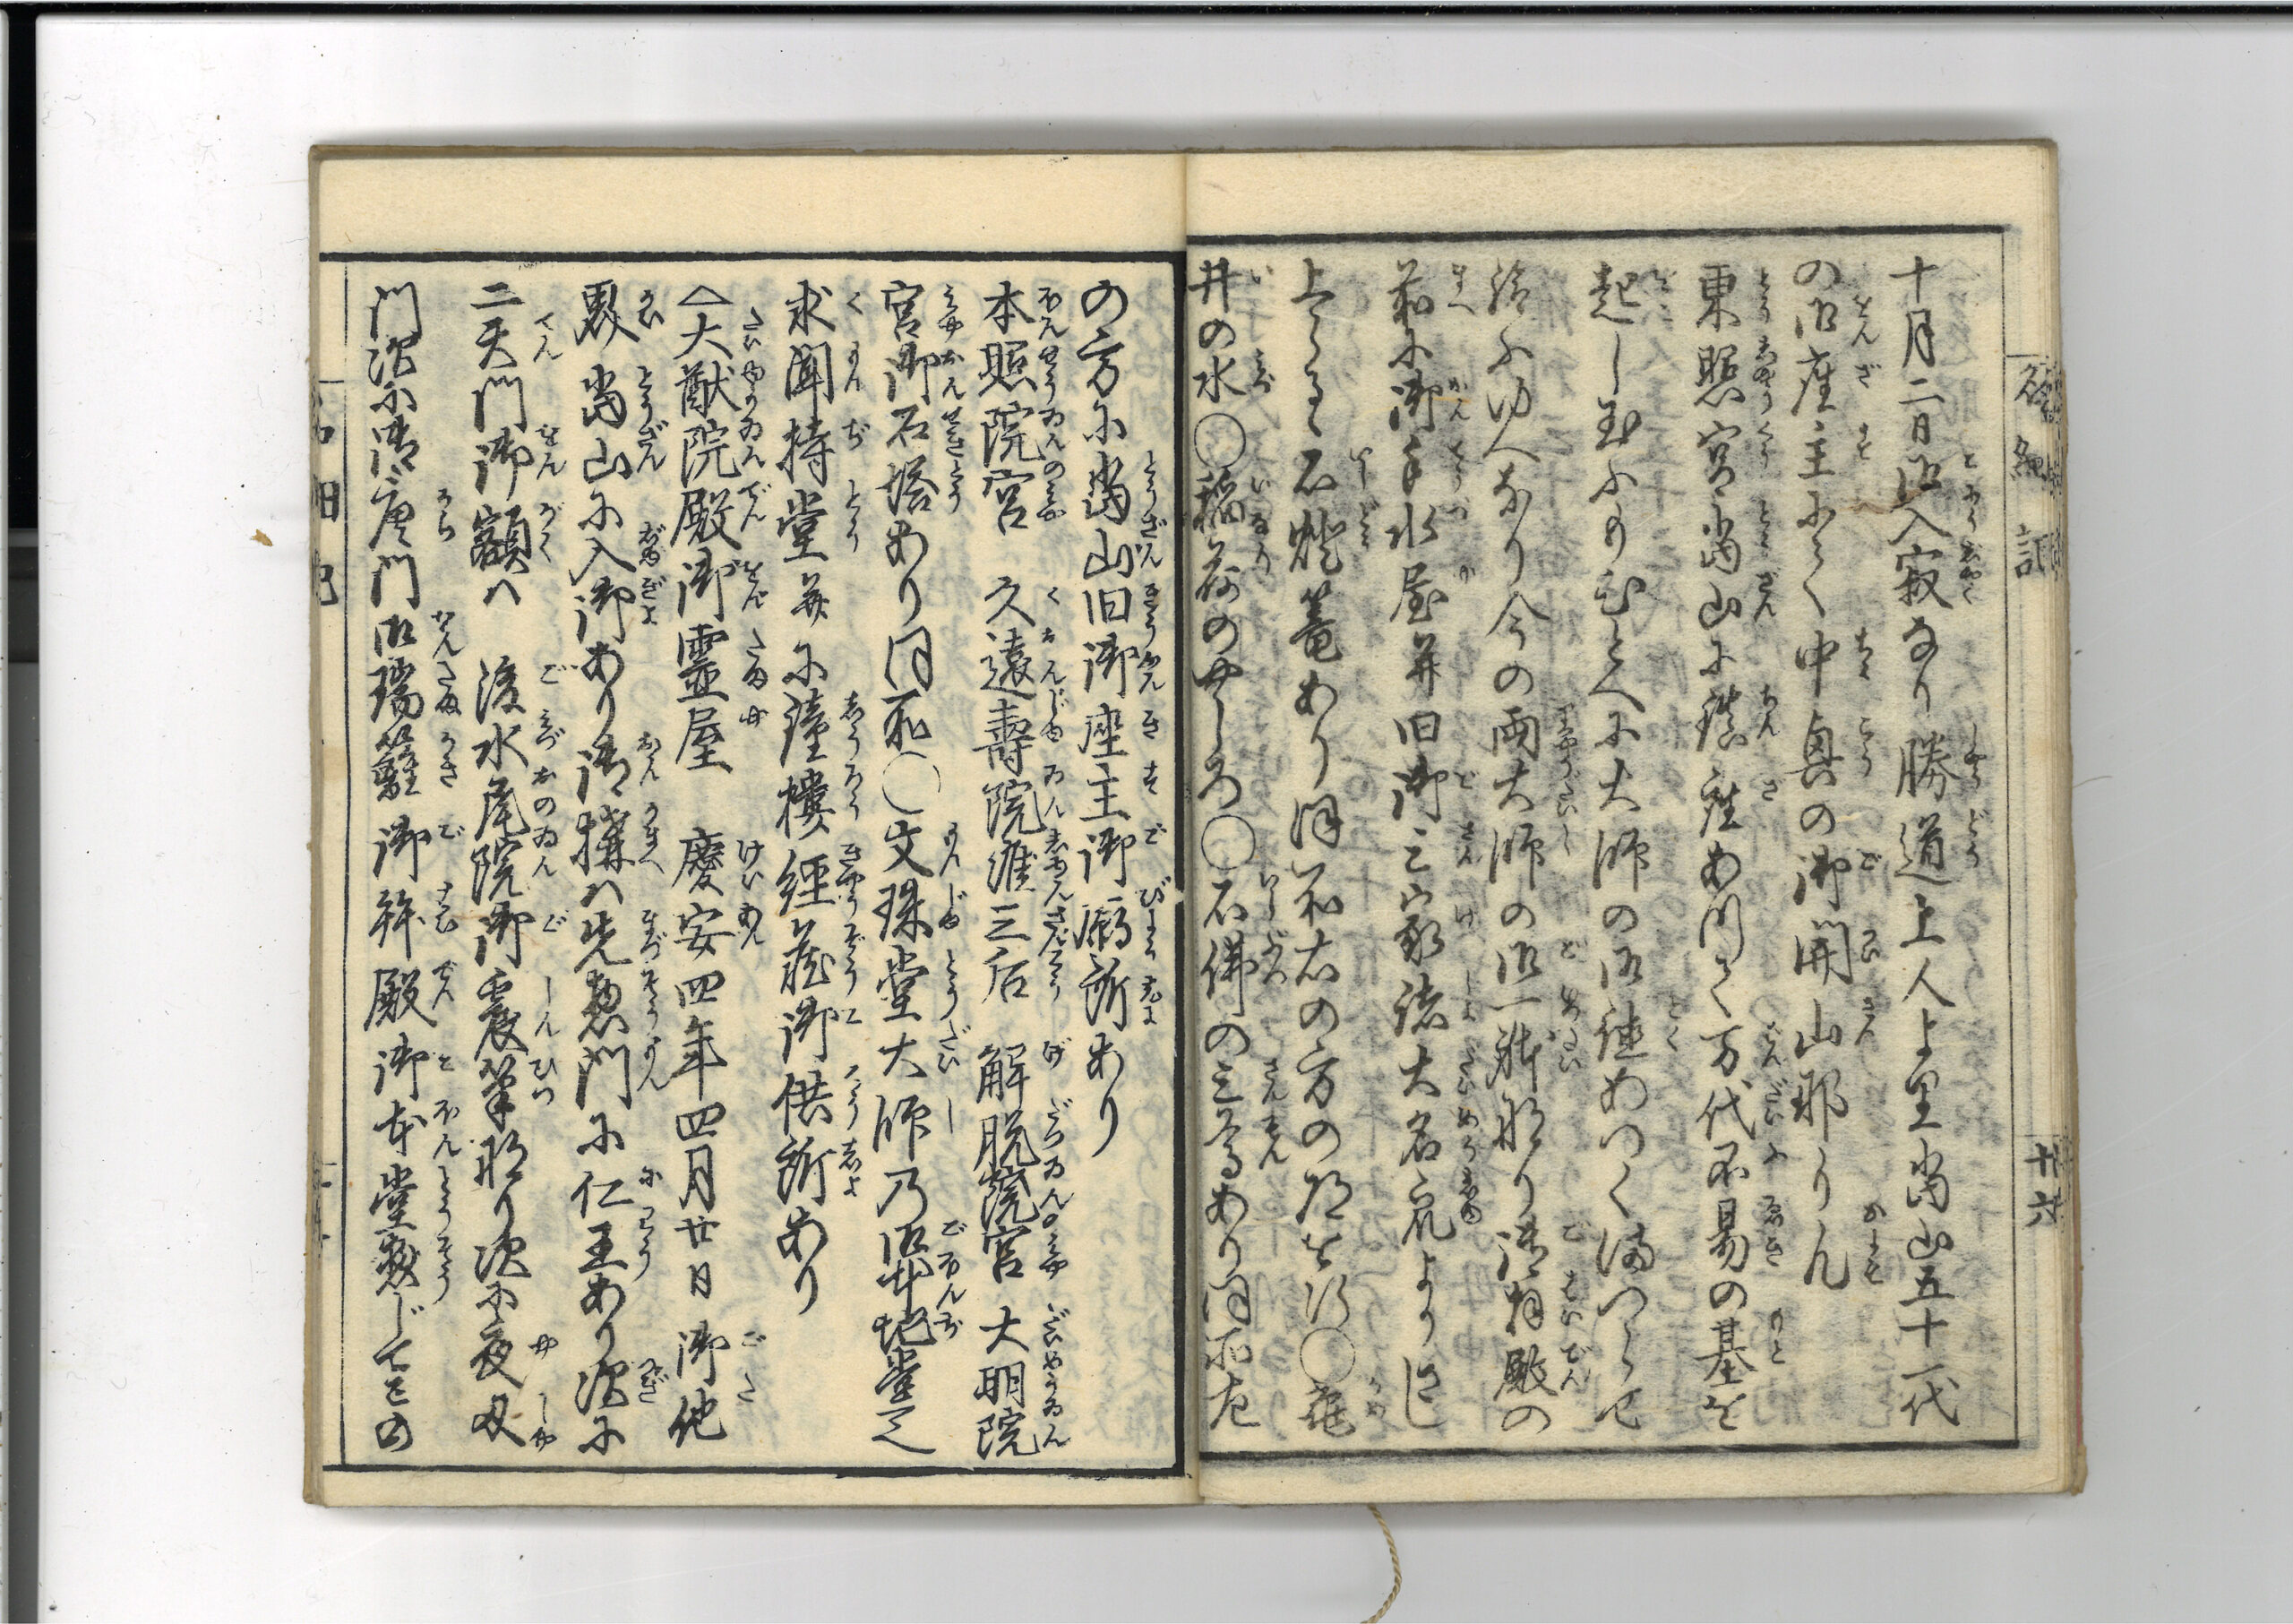 十月二日御入寂なり勝道上人より当山五十一代
の御座主にて中真の御開山耶らん
東照宮当山に鎮座あつて万代不易の基を
起し玉ふりひとへに大師の御徳あつく満つらせ
給ふゆへなり今の両大師の御一躰なり御拝殿の
前に御手水屋并旧御三家諸大名衆より
上らる石燈篭あり同右の方の
井の水〇稲荷のやしろ〇石佛の三尊あり同所左
の方に当山旧御座主御廟所あり
本照院宮 久遠壽院准三后 解脱院宮 大明院
宮御石塔あり同所〇文珠堂大師乃御廾地堂是
求聞持堂并に鐘樓經蔵御供所あり
大猷院殿御霊屋 慶安四年四月廿日御他
界当山に入御あり御構ハ先惣門に仁王あり次に
二天門御額ハ 後水尾院御震筆なり次に夜叉
門次に御唐門御瑞籬御幣殿御本堂惣じてこの
十六